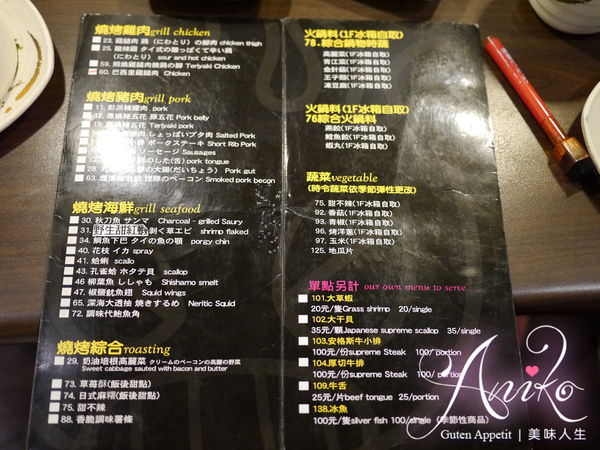 燒烤雞肉grill chicken
23. 雞腿肉 鶏 (にわとり) の脚肉 chicken thigh
25. 酸辣雞 タイ式の酸っぱくて辛い鶏
(にわとり) sour and hot chicken
59. 照燒雞腿 Teriyaki Chicken
60. 巴西里雞腿肉 Chicken
燒烤豬肉grill pork
pork
Pork belly
13. Teriyaki pork
豬肉 しょっぱいブタ肉 Salted Pork
ポークステーキ Short Rib Pork
ソーセージ Sausages
した(舌) pork tongue
28. の大腸(だいちょう) Pork gut
63. のベーコン Smoked pork becon
燒烤海鮮grill seafood
30. 秋刀魚 サンマ Charcoal - grilled Saury
31. 野生甜紅蝦 剝く草エビ shrimp flaked
34. 鯛魚下巴 タイの魚の顎 porgy chin
40. 花枝 イカ spray
41. 蛤蜊 scallo
43. 孔雀蛤 ホタテ貝 scallop
46 柳葉魚 ししゃも Shishamo smelt
47. 椒鹽魷魚翅 Squid wings
65. 深海大透抽 燒きするめ Neritic Squid
72. 調味代鮑魚角
燒烤綜合roasting
29. 奶油培根高麗菜 クリームのベーコンの高麗の野菜
Sweet cabbage sauted with bacon and butter
73. 草莓酥(飯後甜點)
74. 日式麻糬(飯後甜點)
75. 甜不辣
88. 香脆調味薯條
火鍋料(1F冰箱自取)
78.綜合鍋物時蔬
高麗菜(1F冰箱自取)
青江菜(1F冰箱自取)
金針菇(1F冰箱自取)
王子麵(1F冰箱自取)
凍豆腐(1F冰箱自取)
火鍋料(1F冰箱自取)
76綜合火鍋料
燕餃(1F冰箱自取)
鱈魚餃(1F冰箱自取)
蝦丸(1F冰箱自取)
蔬菜vegetable
(時令蔬菜依季節彈性更改)
75. 甜不辣(1F冰箱自取)
92. 香菇(1F冰箱自取)
93. 青椒(1F冰箱自取)
96. 烤洋蔥(1F冰箱自取)
97. 玉米(1F冰箱自取)
125. 地瓜片
單點另計 our own menu to serve
101.大草蝦
20元/隻Grass shrimp 20/single
102.大干貝
35元/顆Japanese supreme scallop 35/single
103.安格斯牛小排
100元/份supreme Steak 100/portion
104.厚切牛排
100元/份supreme Steak 100/portion
109.牛舌
25元/片beef tongue 25/portion
138.冰魚
100元/隻sliver fish 100/single (季節性商品)
Aniko
Guten Appetit | 美味人生